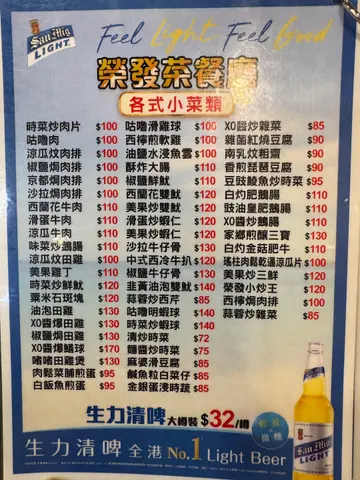 San Mig
LIGHT
Feel Light Feel Good
榮發茶餐廳
各式小菜類
時菜炒肉片 $100
咕嚕肉 $100
涼瓜炆肉排 $100
椒鹽焗肉排 $100
京都焗肉排 $100
沙拉焗肉排 $100
西蘭花牛肉 $110
滑蛋牛肉 $110
涼瓜牛肉 $110
味菜炒鵝腸 $110
涼瓜炆田雞 $130
美果雞丁 $110
時菜炒鮮魷 $120
粟米石斑塊 $120
油泡田雞 $130
XO醬爆田雞 $130
椒鹽焗田雞 $130
XO醬爆鱔球 $170
啫啫田雞煲 $130
肉鬆菜脯煎蛋 $95
白飯魚煎蛋 $95
咕嚕滑雞球 $100
西檸煎軟雞 $100
油鹽水浸魚雲 $100
酥炸大腸 $110
椒鹽鮮魷 $110
西蘭花雙魷 $120
美果炒雙魷 $120
滑蛋炒蝦仁 $120
美果炒蝦仁 $120
沙拉牛仔骨 $130
中式西冷牛扒 $120
椒鹽牛仔骨 $130
韭黃油泡雙魷 $140
蒜蓉炒西芹 $85
咕嚕明蝦球 $140
時菜炒蝦球 $140
清炒時菜 $72
麵醬炒時菜 $75
麻婆滑豆腐 $85
鹹魚粒白菜仔 $85
金銀蛋浸時蔬 $85
XO醬炒雜菜 $85
雜菌紅燒豆腐 $90
南乳炆粗齋 $90
香煎琵琶豆腐 $90
豆豉鯪魚炒時菜 $95
白灼肥鵝腸 $110
豉油皇肥鵝腸 $110
涼瓜炒鵝腸 $110
家鄉煎釀三寶 $130
白灼金菇肥牛 $110
瑤柱肉鬆乾逼涼瓜片 $100
美果炒三鮮 $120
榮發小炒王 $120
西檸焗肉排 $100
蒜蓉炒雜菜 $85
生力清啤 大樽裝 $32/樽
輕盈
微醺
生力清啤 全港 No.1 Light Beer
San Mig
LIGHT